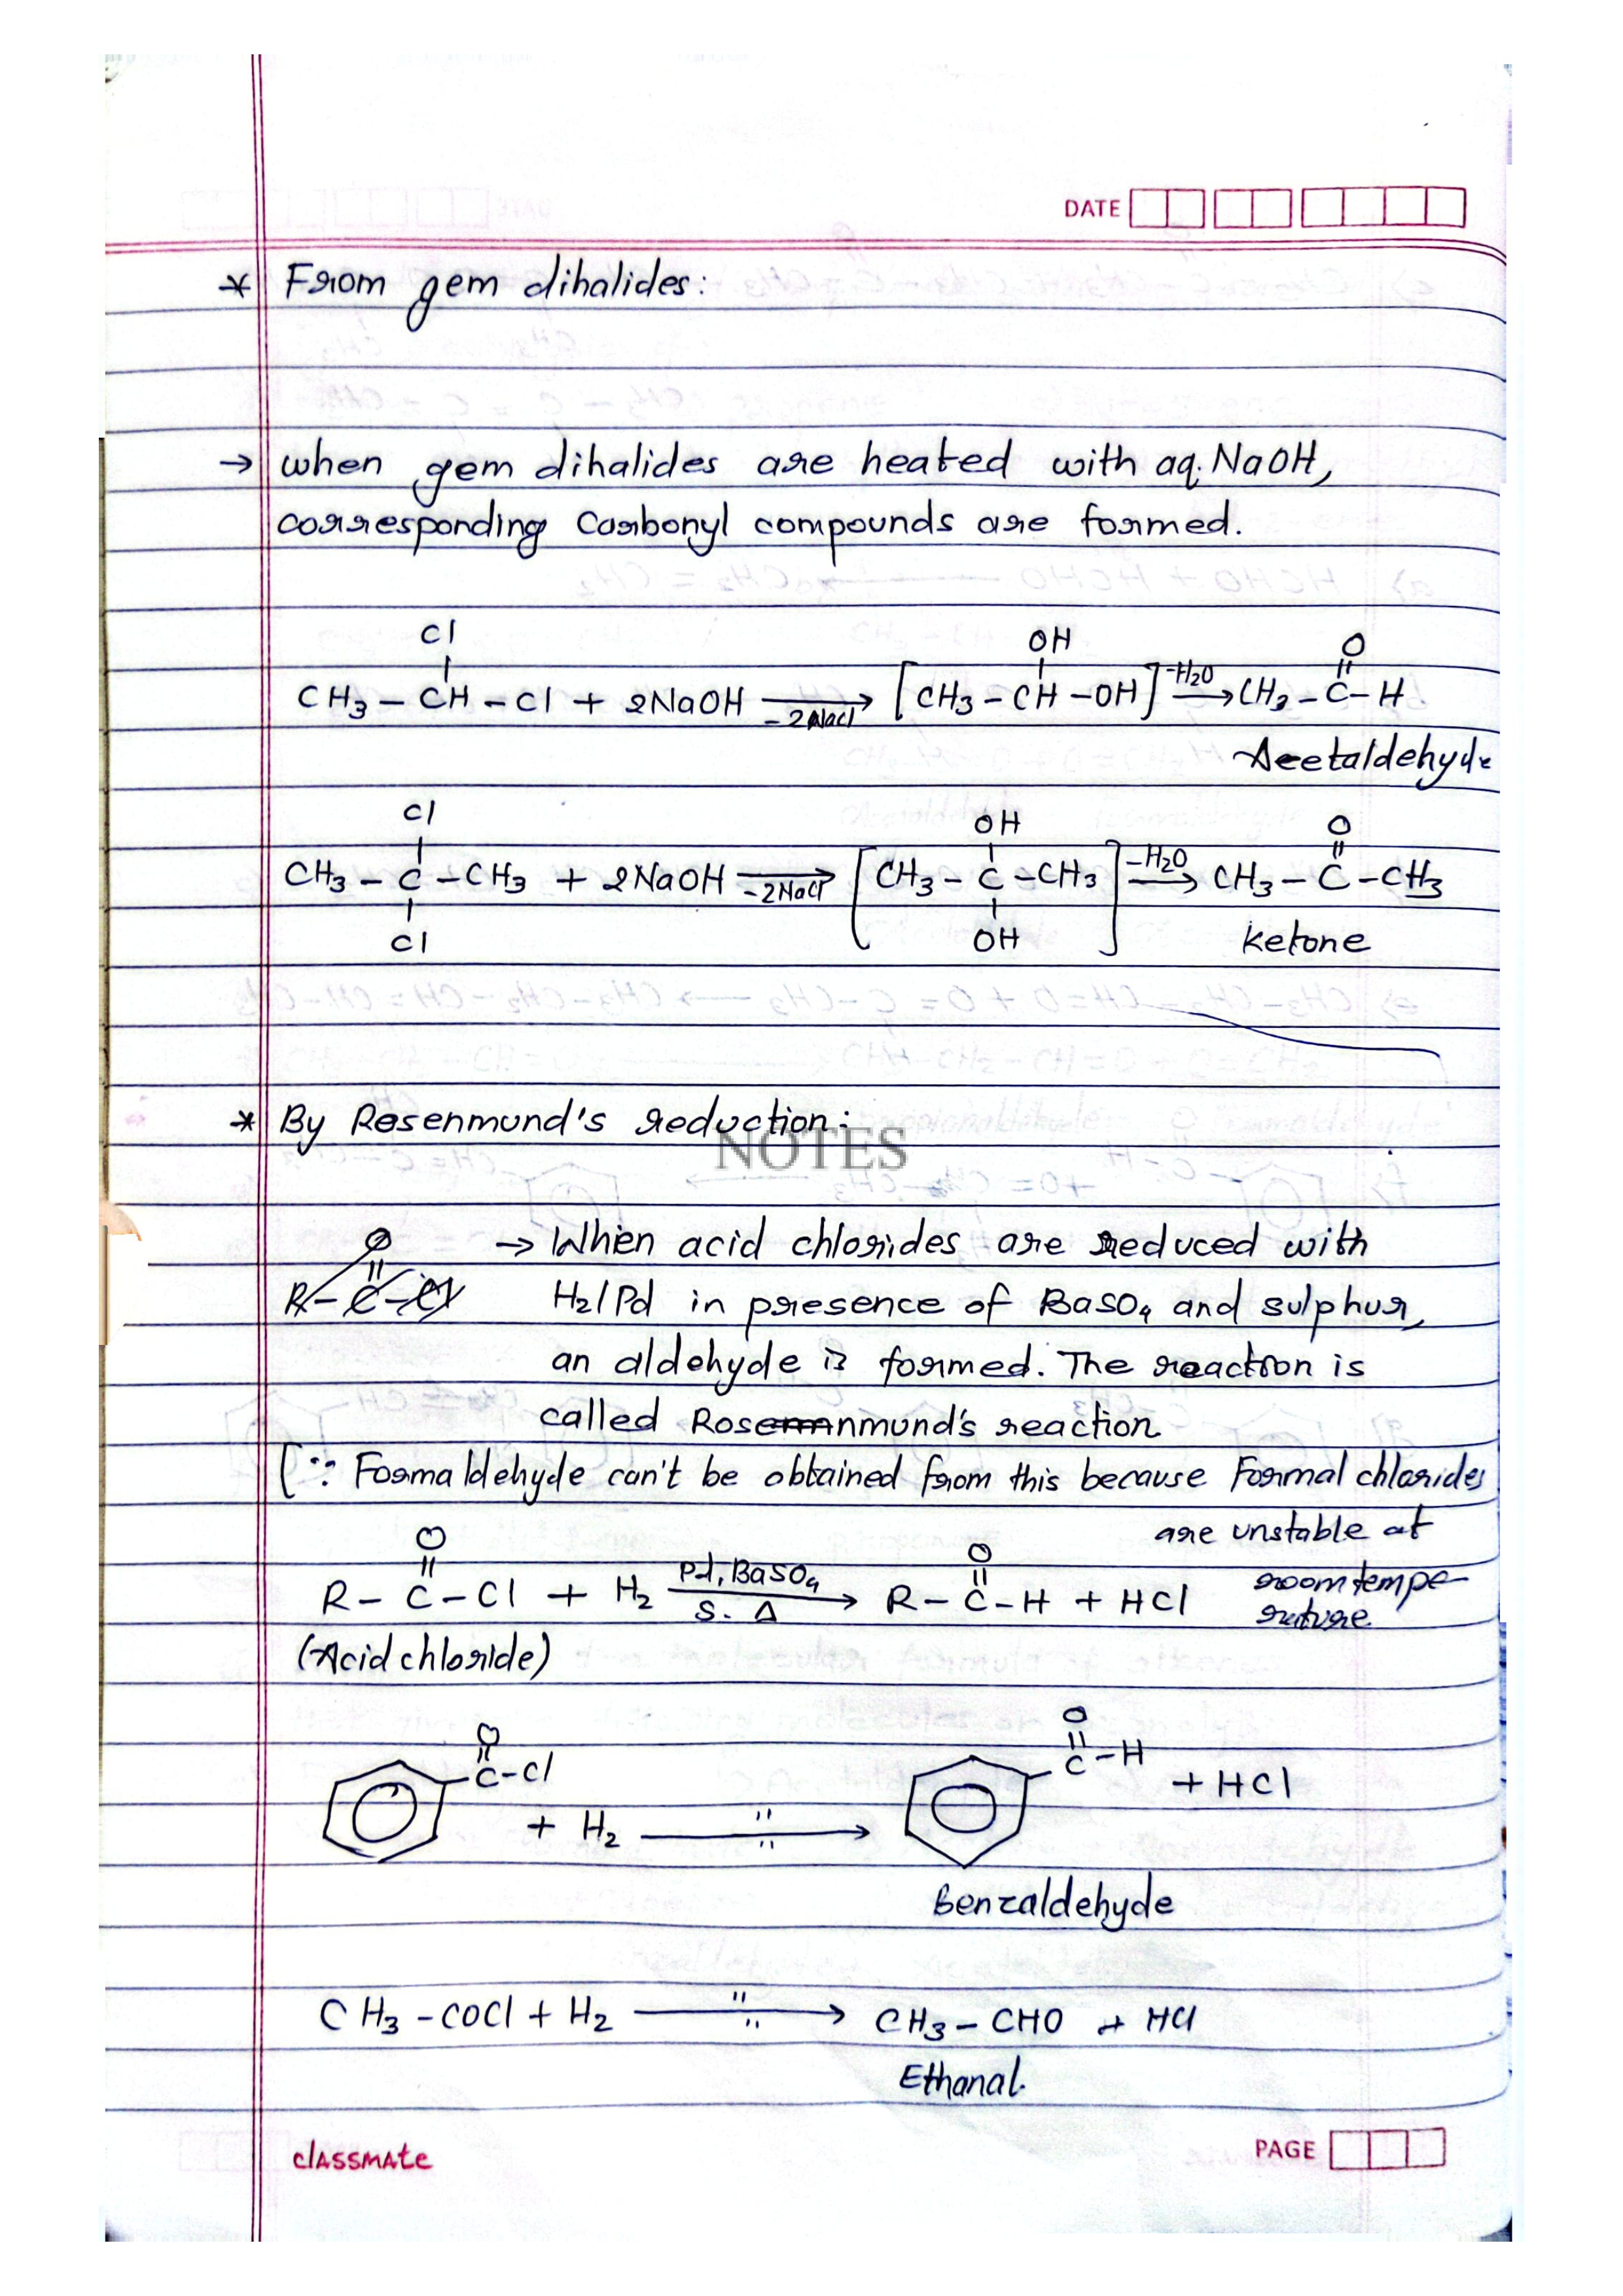 DATE
* From gem dihalides:
→ when gem dihalides are heated with aq. NaOH,
corresponding Carbonyl compounds are formed.
Cl OH O
CH3 – CH – Cl + 2NaOH –2NaCl → [CH3 – CH – OH] –H2O → CH3 – C – H
Acetaldehyde
Cl OH O
CH3 – C – CH3 + 2NaOH –2NaCl → [CH3 – C – CH3] –H2O → CH3 – C – CH3
Cl OH ketone
* By Rosenmund's reduction:
NOTES
O → When acid chlorides are reduced with
R – C – Cl H2/Pd in presence of BaSO4 and sulphur,
an aldehyde is formed. The reaction is
called Rosenmund's reaction
[∵ Formaldehyde can't be obtained from this because Formal chlorides
are unstable at
room tempe-
rature
O O
R – C – Cl + H2 Pd, BaSO4 S. Δ → R – C – H + HCl
(Acid chloride)
O O
C – Cl C – H
+ H2 " " → + HCl
Benzaldehyde
CH3 – COCl + H2 " " → CH3 – CHO + HCl
Ethanal.
classmate
PAGE